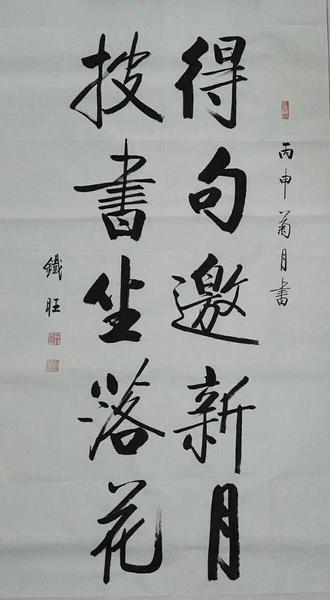 丙申菊月書
得句邀新月
披書坐落花
鐵旺